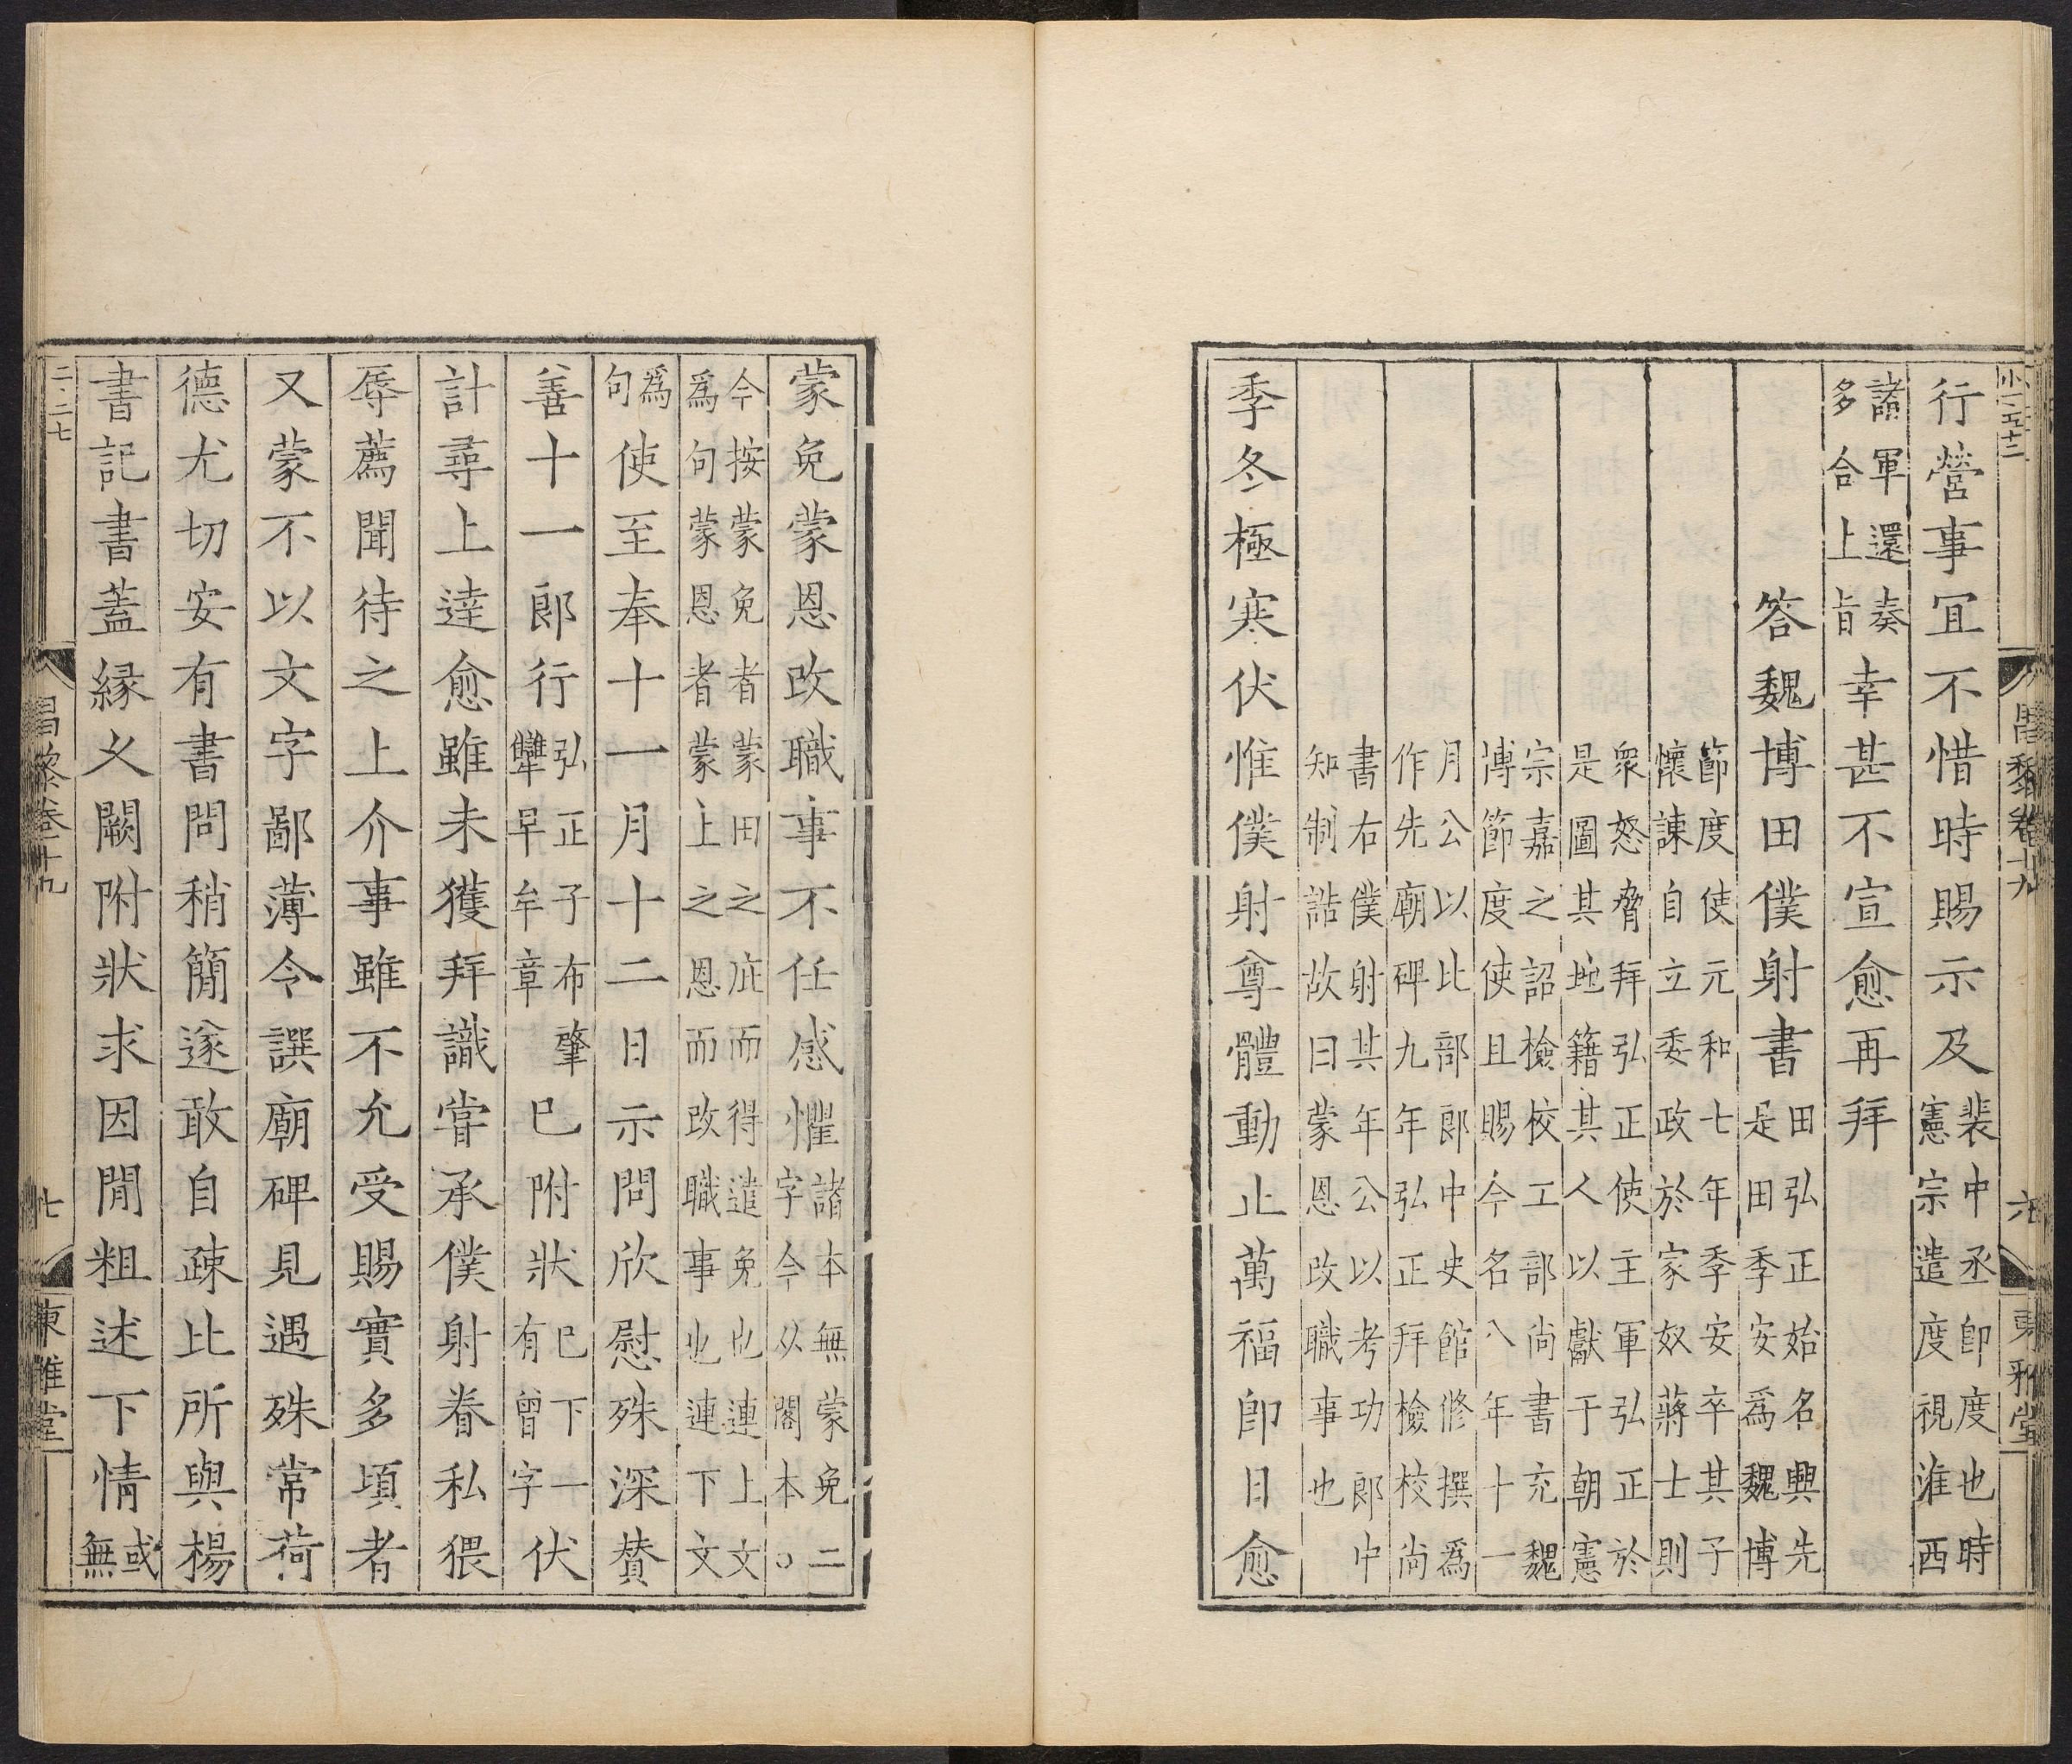 昌黎卷十九 六 東雅堂
行營事宜不惜時賜示及裴中丞即度也時
憲宗遣度視淮西
諸軍還奏
多合上旨幸甚不宣愈再拜
答魏博田僕射書田弘正始名興先
是田季安爲魏博
節度使元和七年季安卒其子
懷諫自立委政於家奴蔣士則
衆怒脅拜弘正使主軍弘正於
是圖其地籍其人以獻于朝憲
宗嘉之詔檢校工部尚書充魏
博節度使且賜今名八年十一
月公以比部郎中史館修撰爲
作先廟碑九年弘正拜檢校尚
書右僕射其年公以考功郎中
知制誥故曰蒙恩改職事也
季冬極寒伏惟僕射尊體動止萬福卽日愈
蒙免蒙恩改職事不任感懼諸本無蒙免二
字今从閣本○
今按蒙免者蒙田之庇而得遣免也連上文
爲句蒙恩者蒙上之恩而改職事也連下文
爲
句使至奉十一月十二日示問欣慰殊深贊
善十一郎行弘正子布肇
犫早牟章巳附狀巳下一
有曾字伏
計尋上達愈雖未獲拜識嘗承僕射眷私猥
辱薦聞待之上介事雖不允受賜實多頃者
又蒙不以文字鄙薄令譔廟碑見遇殊常荷
德尤切安有書問稍簡遂敢自疎比所與楊
書記書蓋緣乂闕附狀求因閒粗述下情或
無
二·二七 昌黎卷十九 七 東雅堂